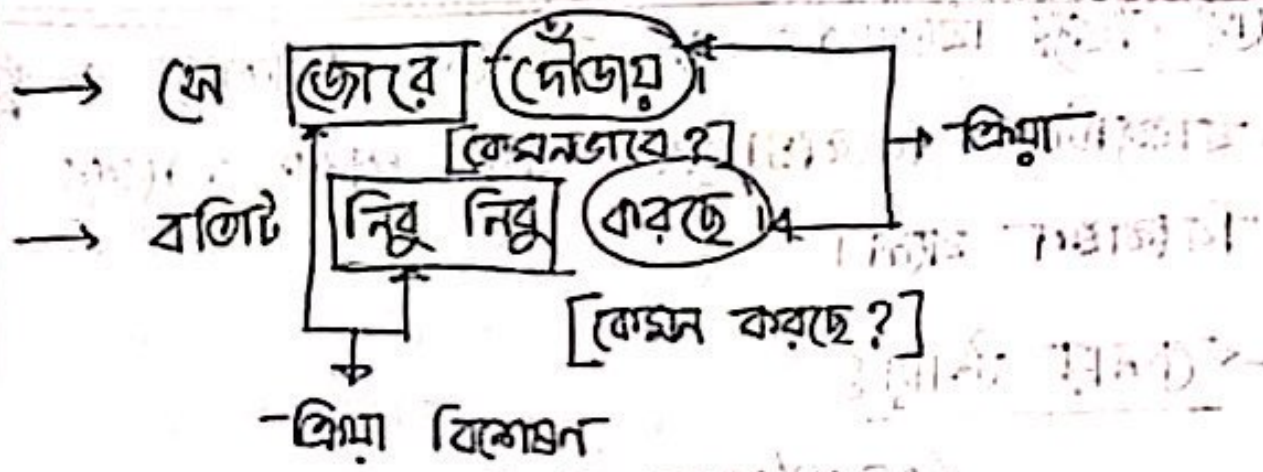 → সে জোরে দৌড়ায়
[কেমনভাবে?]
→ ক্রিয়া
→ বাতিটি নিবু নিবু করছে
[কেমন করছে?]
ক্রিয়া বিশেষণ